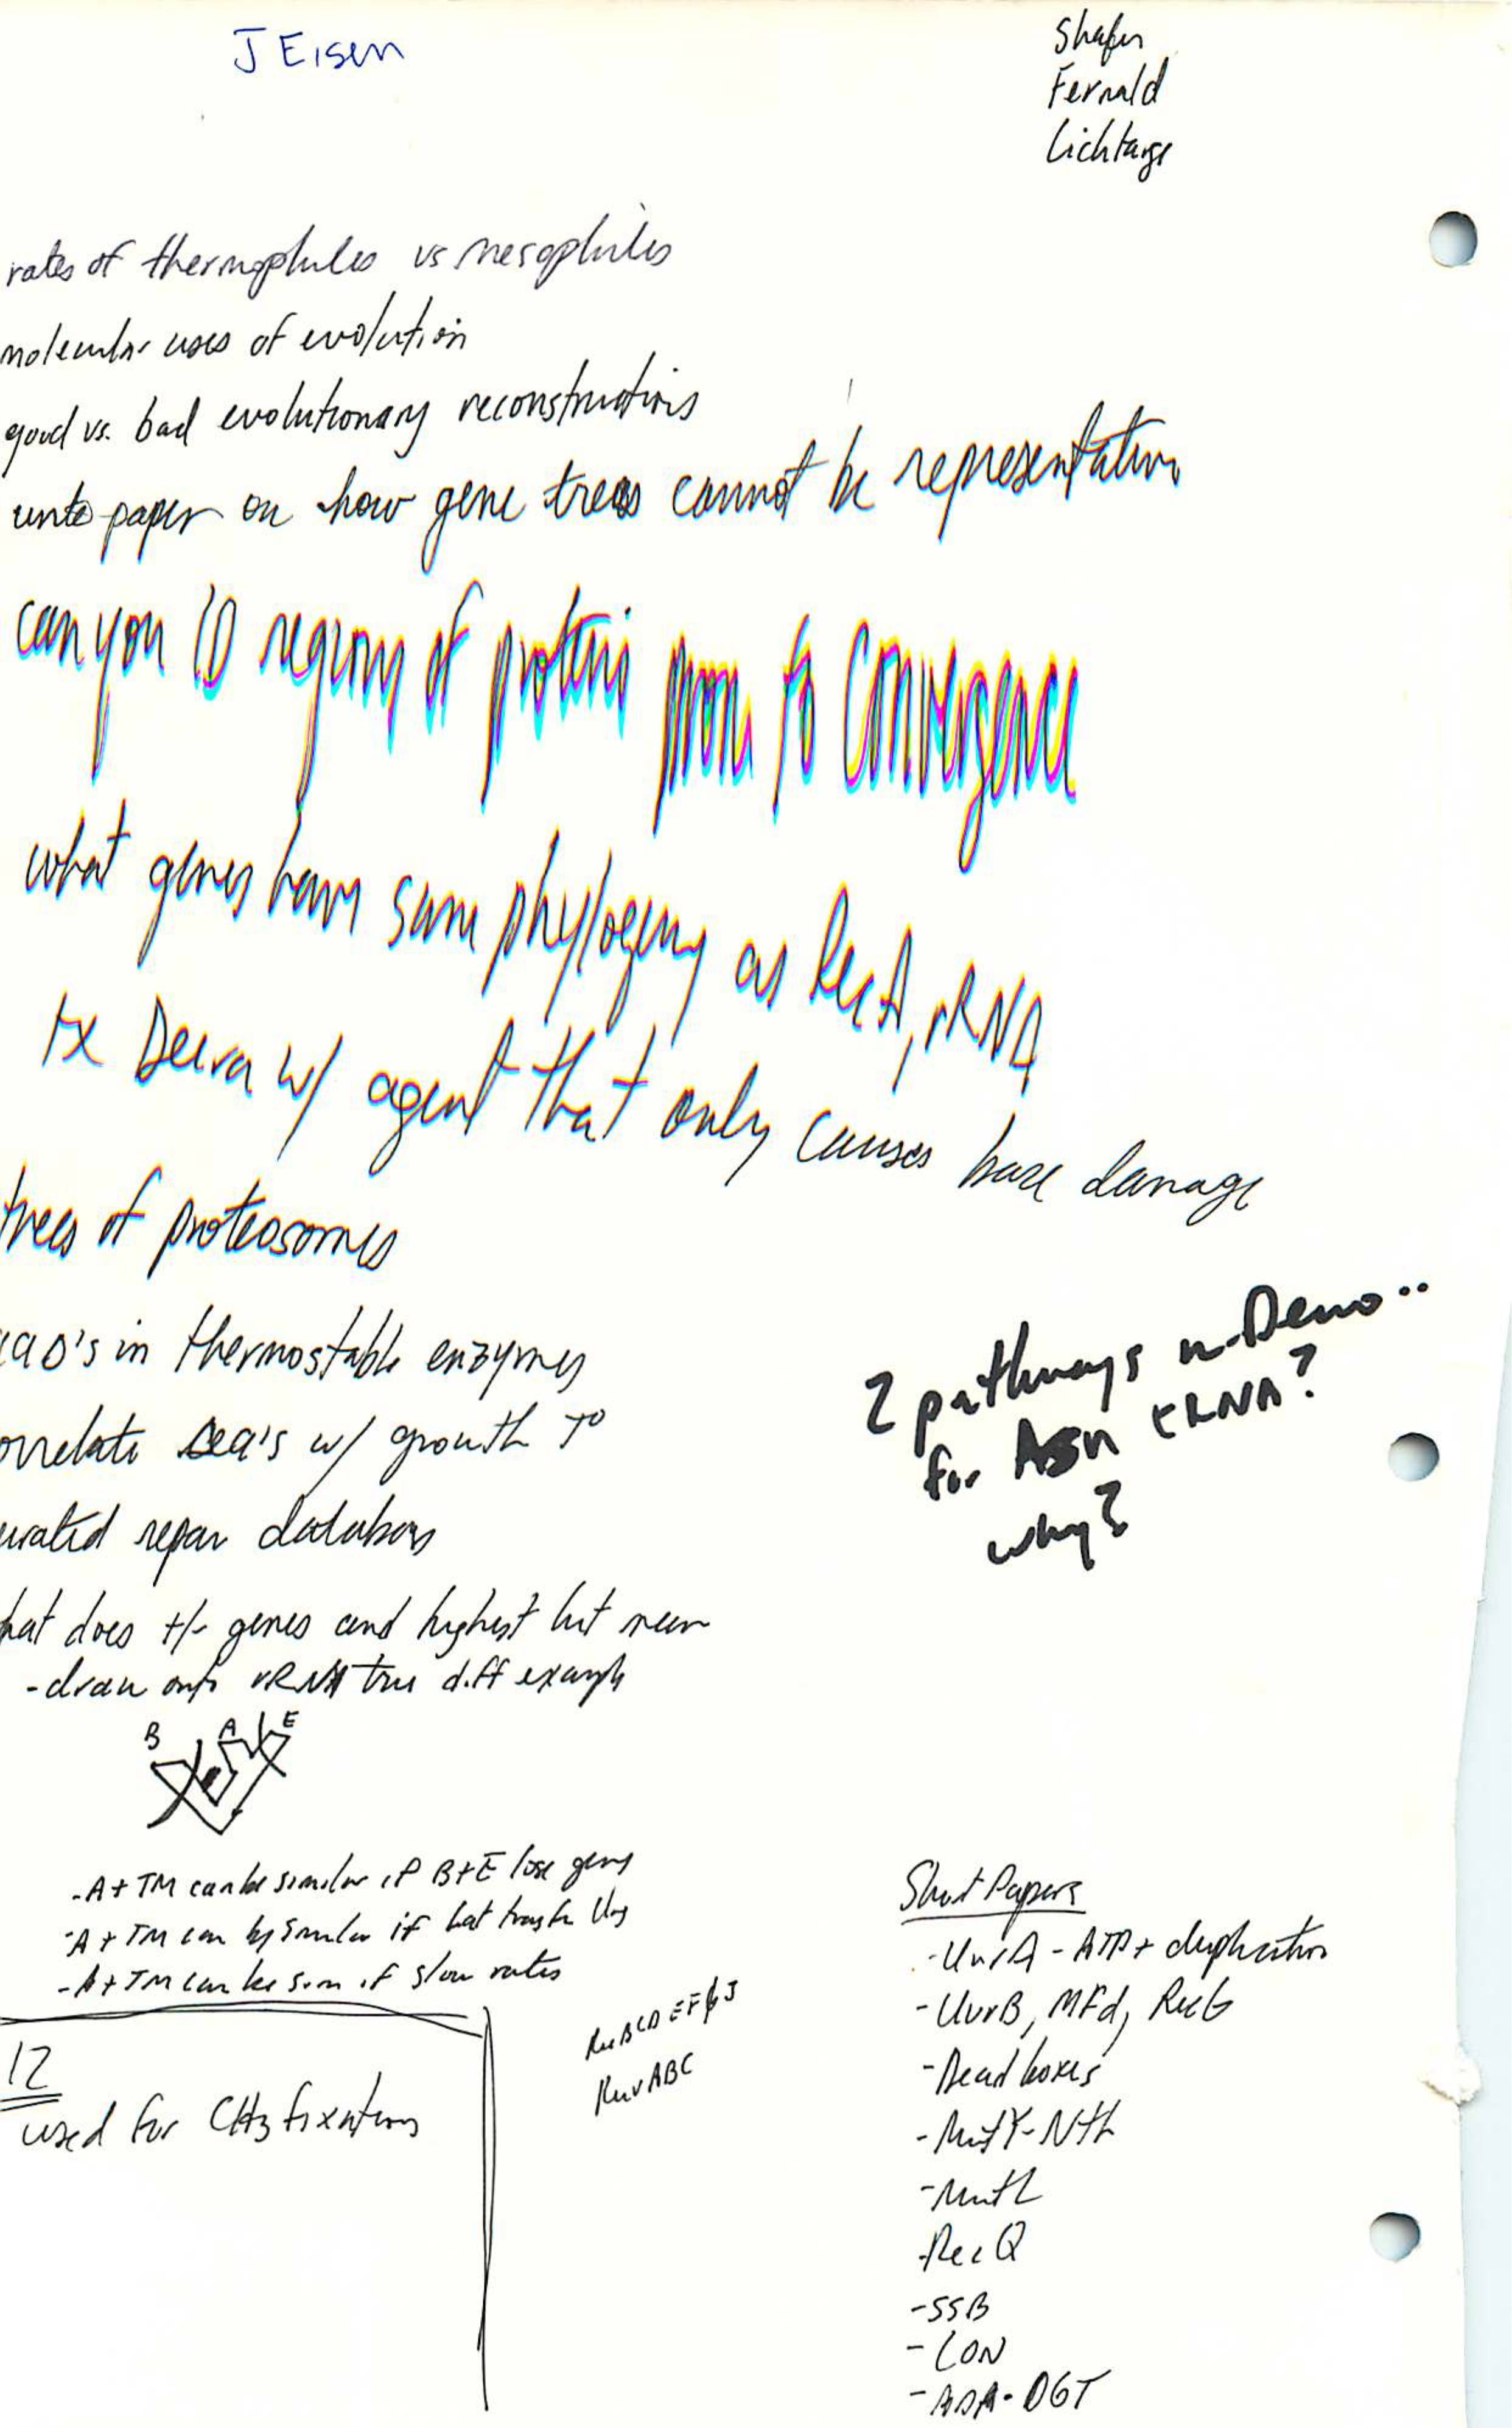 J Eisen
Shafer
Fernald
Lichtarge
rates of thermophiles vs mesophiles
molecular uses of evolution
good vs. bad evolutionary reconstructions
write paper on how gene trees cannot be representative
can you ID regions of proteins prone to convergence
what genes have same phylogeny as RecA, rRNA
tx Deira w/ agent that only causes base damage
trees of proteosomes
in thermostable enzymes
orrelate w/ growth T°
urated repair databases
hat does +/- genes and highest hit mean
- draw onto rRNA tree diff example
2 pathways in Deino..
for Asn tRNA?
why?
B A E
- A + TM can be similar if B + E lose genes
- A + TM can be similar if lat transfer
- A + TM can be sim if slow rates
12
used for CH3 fixation
RecBCD EFGJ
RuvABC
Short Papers
- UvrA - ATP + duplication
- UvrB, MFd, RecG
- Dead boxes
- MutY - Nth
- MutL
- RecQ
- SSB
- LON
- ADA - OGT